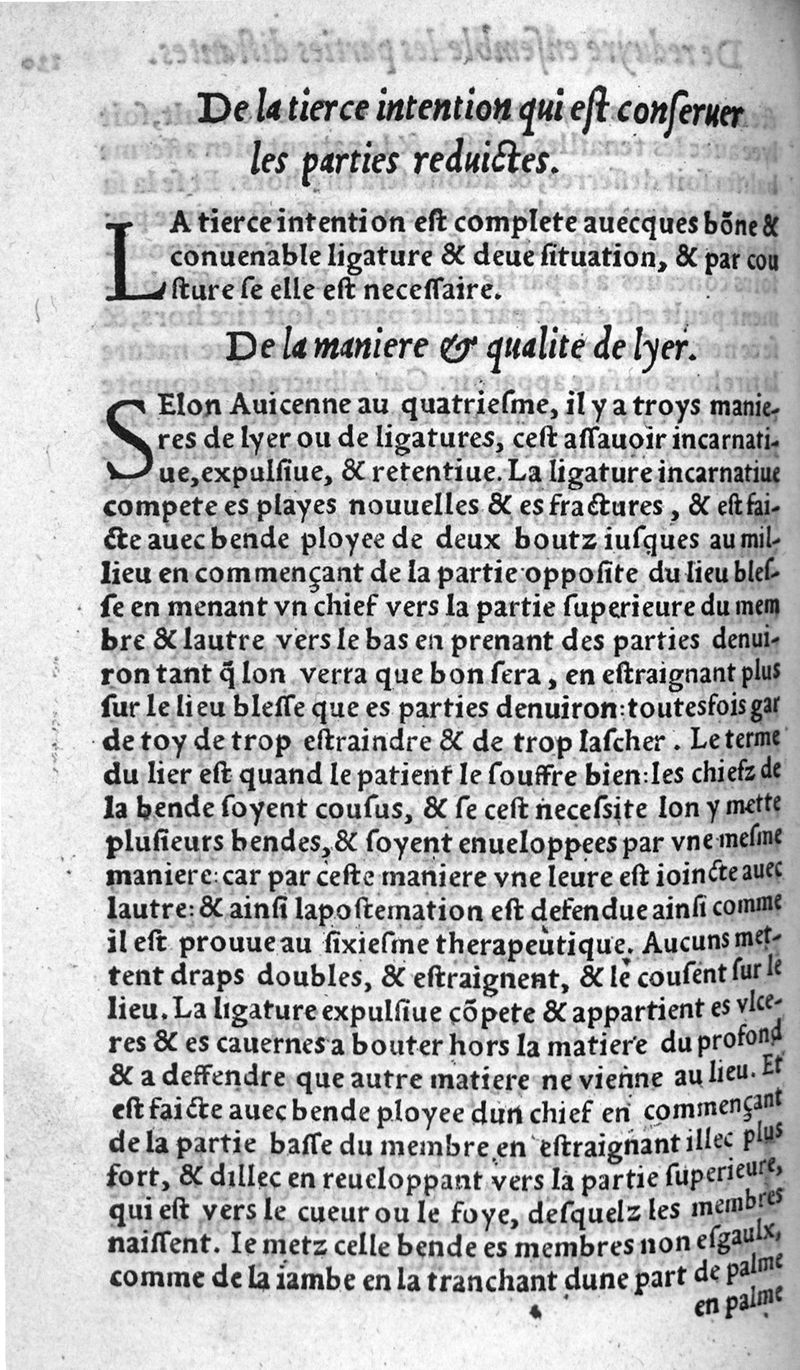 De la tierce intention qui eſt conſeruer
les parties reduictes.
LA tierce intention eſt complete auecques bõne &
conuenable ligature & deue ſituation, & par cou
ſture ſe elle eſt neceſſaire.
De la maniere & qualite de lyer.
SElon Auicenne au quatrieſme, il y a troys manie-
res de lyer ou de ligatures, ceſt aſſauoir incarnati-
ue, expulſiue, & retentiue. La ligature incarnatiue
compete es playes nouuelles & es fractures, & eſt fai-
cte auec bende ployee de deux boutz iuſques au mil-
lieu en commençant de la partie oppoſite du lieu bleſ-
ſe en menant vn chief vers la partie ſuperieure du mem
bre & lautre vers le bas en prenant des parties denui-
ron tant q̃ lon verra que bon ſera, en eſtraignant plus
ſur le lieu bleſſe que es parties denuiron: toutesfois gar
de toy de trop eſtraindre & de trop laſcher. Le terme
du lier eſt quand le patient le ſouffre bien: les chiefz de
la bende ſoyent couſus, & ſe ceſt neceſsite lon y mette
pluſieurs bendes, & ſoyent enueloppees par vne meſme
maniere: car par ceſte maniere vne leure eſt ioincte auec
lautre: & ainſi lapoſtemation eſt defendue ainſi comme
il eſt prouue au ſixieſme therapeutique. Aucuns met-
tent draps doubles, & eſtraignent, & le couſent ſur le
lieu. La ligature expulſiue cõpete & appartient es vlce-
res & es cauernes a bouter hors la matiere du profond
& a deffendre que autre matiere ne vienne au lieu. Et
eſt faicte auec bende ployee dun chief en commençant
de la partie baſſe du membre en eſtraignant illec plus
fort, & dillec en reueloppant vers la partie ſuperieure,
qui eſt vers le cueur ou le foye, deſquelz les membres
naiſſent. Ie metz celle bende es membres non eſgaulx,
comme de la iambe en la tranchant dune part de palme
en palme